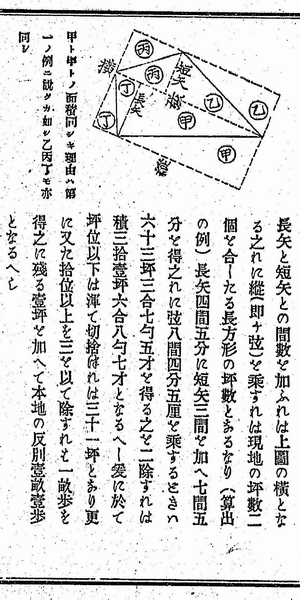 丙
丙
乙
乙
丁
丁
甲
甲
短矢
長矢
横
弦
縦
甲ト甲トノ面積同シキ理由ハ第
一ノ例ニ説クカ如シ乙丙丁モ亦
同シ
長矢と短矢との間數を加ふれは上圖の橫とな
る之れに縱(即ヶ弦)を乘すれは現地の坪數二
個と合したる長方形の坪數とあるなり(算出
の例)長矢四間五分に短矢三間を加へ七間五
分を得之れに弦八間四分五厘を乘するときハ
六十三坪三合七勺五才を得る之を二除すれは
積三拾壹坪六合八勺七才となるへし爰に於て
坪位以下は渾て切捨はれは三十一坪とあり更
に又た拾位以上を三を以て除すれは一畝歩を
得之に殘る壹坪を加へて本地の反別壹畝壹歩
となるへし